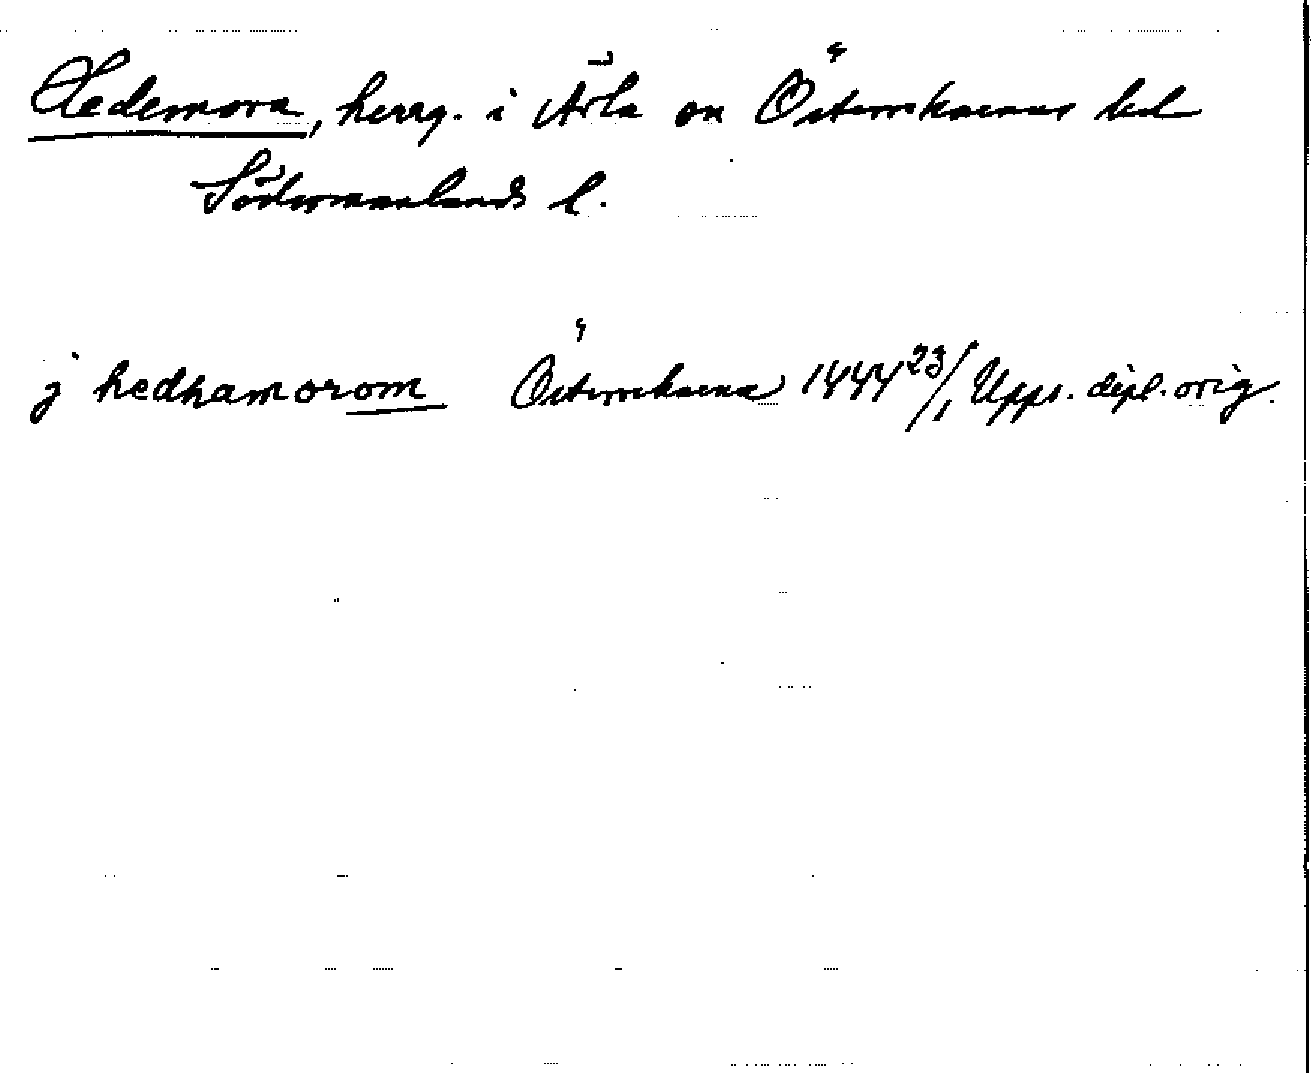 Hedemora, herrg. i Ärla sn Österrekarnes hd
Södermanlands l.
j hedhamorom Österrekarne 1444 23/1 Upps. dipl. orig.